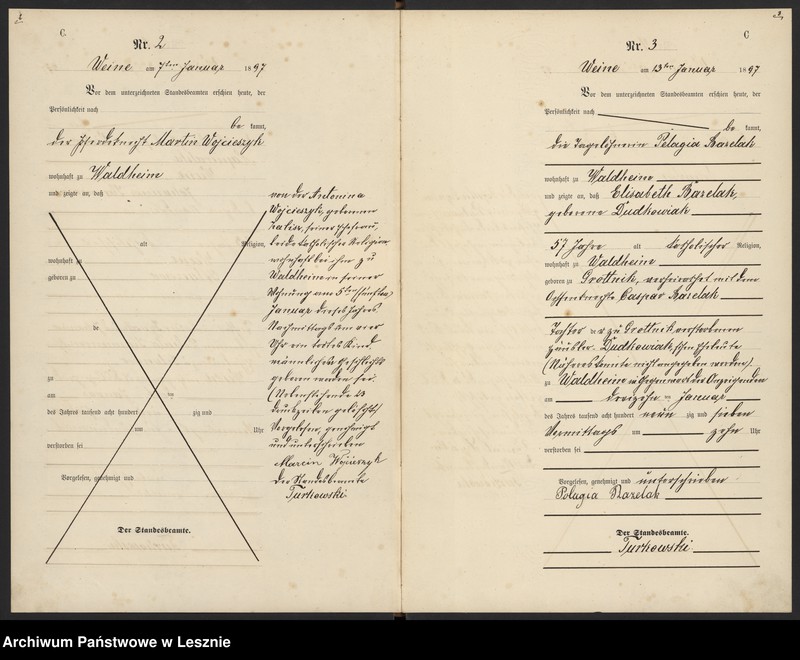 C
Nr. 2
Weine am 7ten Januar 1897
Vor dem unterzeichneten Standesbeamten erschien heute, der
Persönlichkeit nach
be kannt,
der Pferdeknecht Martin Wojcieszyk
wohnhaft zu Waldheim
und zeigte an, daß
alt Religion,
wohnhaft zu
geboren zu
de
zu
am ten
des Jahres tausend acht hundert zig und
um Uhr
verstorben sei
Vorgelesen, genehmigt und
Der Standesbeamte.
von der Antonina
Wojcieszyk, geborenen
seiner Ehefrau,
beide katholischer Religion
wohnhaft bei ihm zu
Waldheim in seiner
Wohnung am 5ten (fünften)
Januar dieses Jahres
Nachmittags um vier
Uhr ein todtes Kind
männlichen Geschlechts
geboren worden sei.
(Nebenstehende 23
Druckzeilen gelöscht)
Vorgelesen, genehmigt
und unterschrieben
Marcin Wojcieszyk
Der Standesbeamte
Turkowski
C
Nr. 3
Weine am 13ten Januar 1897
Vor dem unterzeichneten Standesbeamten erschien heute, der
Persönlichkeit nach
be kannt,
die Tagelöhnerin Pelagia
wohnhaft zu Waldheim
und zeigte an, daß Elisabeth
geborene Dudkowiak
57 Jahre alt katholischer Religion,
wohnhaft zu Waldheim
geboren zu Grottnik, verheirathet mit dem
Ochsenknechte Caspar
Tochter der zu Grottnik verstorbenen
Häusler Dudkowiakschen Eheleute
(Näheres konnte nicht angegeben werden)
zu Waldheim in Gegenwart der Anzeigenden
am dreizehn ten Januar
des Jahres tausend acht hundert neun zig und sieben
Vormittags um zehn Uhr
verstorben sei
Vorgelesen, genehmigt und unterschrieben
Pelagia
Der Standesbeamte.
Turkowski
Archiwum Państwowe w Lesznie